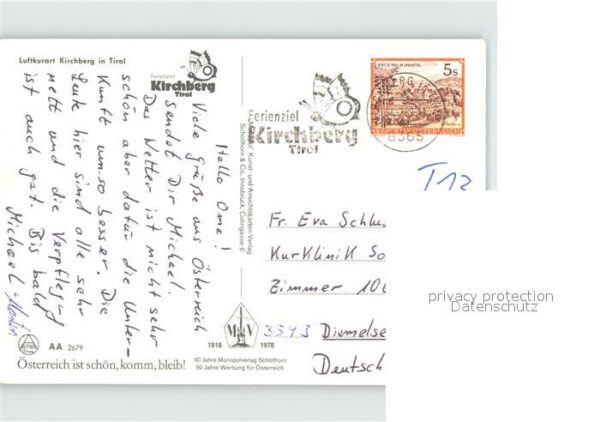 Luftkurort Kirchberg in Tirol
Ferienziel
Kirchberg
Tirol
Hello Oma!
Viele Grüße aus Österreich
sendet Dir Michael.
Das Wetter ist nicht sehr
schön aber dafür die Unter-
kunft um so besser. Die
Leute hier sind alle sehr
nett und die Verpflegung
ist auch gut. Bis bald
Michael
AA 2679
Österreich ist schön, komm, bleib!
1918 1978
60 Jahre Monopolverlag Schöllhorn
60 Jahre Werbung für Österreich
Kunst- und Ansichtskarten-Verlag
Schöllhorn & Co., Innsbruck
Ferienziel
Kirchberg
Tirol
5s
REPUBLIK ÖSTERREICH
6365
T12
Fr. Eva Schlu
Kurklinik So
Zimmer 106
3543 Diemelse
Deutsch
privacy protection
Datenschutz